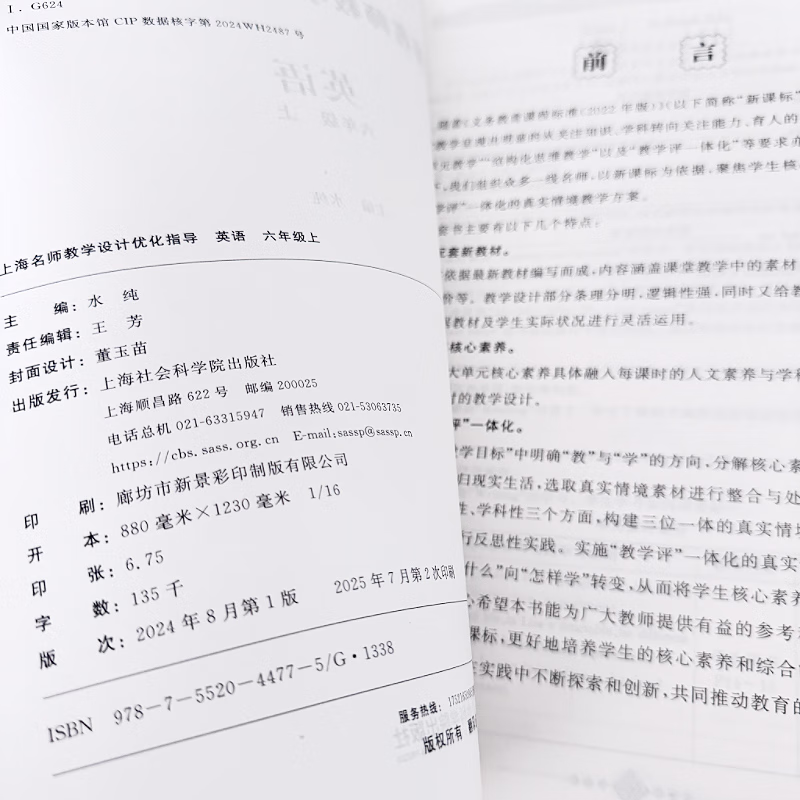 Ⅰ. G624
中国国家版本馆 CIP 数据核字第 2024WH2487 号
英语
六年级 上
上海名师教学设计优化指导 英语 六年级上
主 编：水 纯
责任编辑：王 芳
封面设计：董玉苗
出版发行：上海社会科学院出版社
上海顺昌路 622 号 邮编 200025
电话总机 021-63315947 销售热线 021-53063735
https://cbs.sass.org.cn E-mail:sassp@sassp.cn
印 刷：廊坊市新景彩印制版有限公司
开 本：880 毫米×1230 毫米 1/16
印 张：6.75
字 数：135 千
版 次：2024 年 8 月第 1 版 2025 年 7 月第 2 次印刷
ISBN 978-7-5520-4477-5/G·1338
服务热线：
版权所有
前 言
随着《义务教育课程标准（2022 年版）》（以下简称“新课标”
关注知识、学科转向关注能力、育人的
教学”“结构化思维教学”以及“教学评一体化”等要求
，我们组织众多一线名师，以新课标为依据，聚焦学生核
学评”一体化的真实情境教学方案。
套书主要有以下几个特点：
套新教材。
依据最新教材编写而成，内容涵盖课堂教学中的素材
价等。教学设计部分条理分明，逻辑性强，同时又给教
教材及学生实际状况进行灵活运用。
核心素养。
大单元核心素养具体融入每课时的人文素养与学科
的教学设计。
评”一体化。
教学目标”中明确“教”与“学”的方向，分解核心素
归现实生活，选取真实情境素材进行整合与处
性、学科性三个方面，构建三位一体的真实情境
行反思性实践。实施“教学评”一体化的真实
什么”向“怎样学”转变，从而将学生核心素养
心希望本书能为广大教师提供有益的参考
课标，更好地培养学生的核心素养和综合
实践中不断探索和创新，共同推动教育的